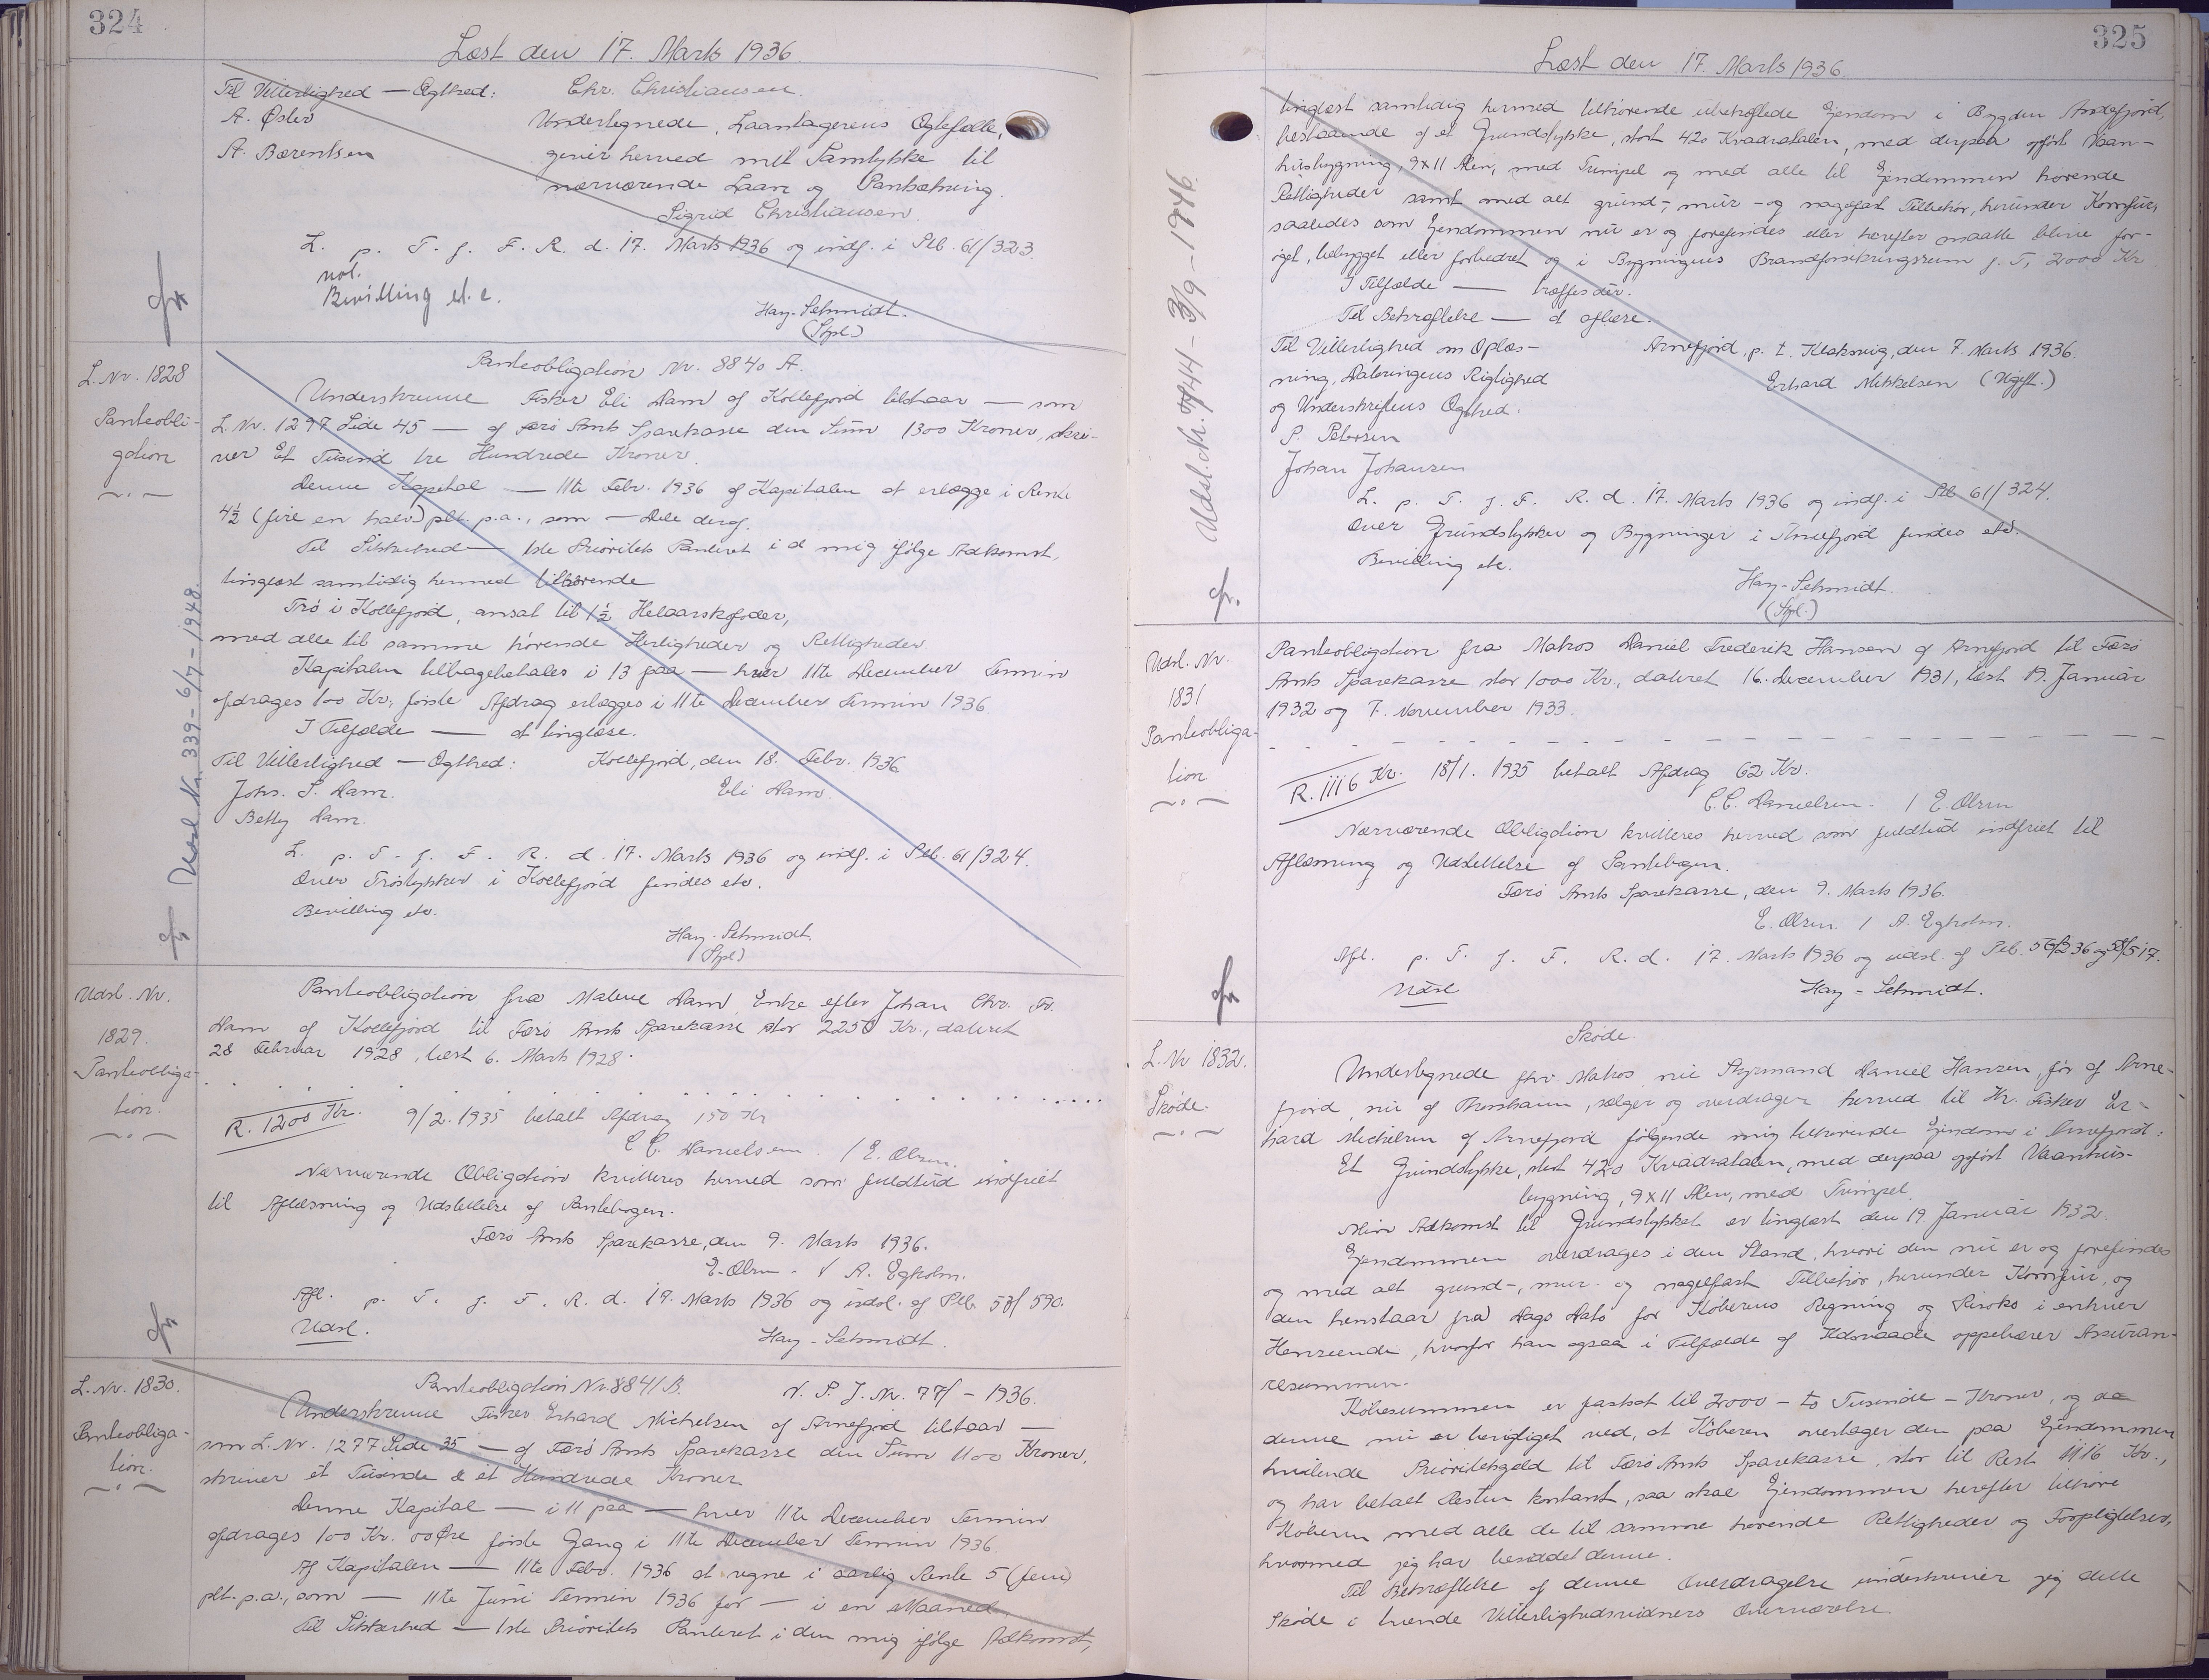 324
Læst den 17. Marts 1936.
Til Vitterlighed — Ægthed: Chr. Christiansen.
A. Øster Undertegnede, Laantagerens Ægtefælle,
A. Bærentsen giver herved mit Samtykke til
nærværende Laan og Pantsætning.
Sigrid Christiansen.
L. p. T. f. F. R. d. 17. Marts 1936 og indf. i Plb. 61/323.
not.
Bevilling et c.
Hay-Schmidt.
(Spl)
L. Nr. 1828
Panteobli-
gation
Panteobligation Nr. 8840 A.
Underskrevne Fisker Eli Dam af Kollefjord tilstaar — som
L. Nr. 1297 Side 45 — af Færø Amts Sparekasse den Sum 1300 Kroner, skri-
ver Et Tusind tre Hundrede Kroner.
Denne Kapital — 11te Febr. 1936 af Kapitalen at erlægge i Rente
4½ (fire en halv) pCt. p.a., som — Dele deraf.
Til Sikkerhed — 1ste Prioritets Panteret i d mig ifølge Adkomst,
tinglæst samtidig hermed tilhørende
Trø i Kollefjord, ansat til 1½ Helaarskofoder,
med alle til samme hørende Herligheder og Rettigheder
Kapitalen tilbagebetales i 13 paa — hver 11te December Termin
afdrages 100 Kr., første Afdrag erlægges i 11te December Termin 1936.
I Tilfælde — at tinglæse.
Til Vitterlighed — Ægthed: Kollefjord, den 18. Febr. 1936
Johs. S. Dam. Eli Dam.
Betty Dam.
L. p. T. f. F. R. d. 17. Marts 1936 og indf. i Plb. 61/324.
Over Trøstykker i Kollefjord findes etc.
Bevilling etc.
Hay-Schmidt.
(Spl)
Udsl. Nr. 339 - 6/7 - 1948.
Udsl. Nr.
1829.
Panteobliga-
tion.
Panteobligation fra Malene Dam, Enke efter Johan Chr. Fr.
Dam af Kollefjord til Færø Amts Sparekasse stor 2250 Kr., dateret
28 Februar 1928, læst 6. Marts 1928.
R. 1200 Kr. 9/2. 1935 betalt Afdrag 150 Kr
C. C. Danielsen. / E. Olsen.
Nærværende Obligation kvitteres herved som fuldtud indfriet
til Aflæsning og Udslettelse af Pantebogen.
Færø Amts Sparekasse, den 9. Marts 1936.
E. Olsen. / A. Egholm.
Afl. p. T. f. F. R. d. 17. Marts 1936 og udsl. af Plb. 53/590.
Udsl.
Hay-Schmidt.
L. Nr. 1830.
Panteobliga-
tion.
Panteobligation Nr. 8841 B. N. P. J. Nr. 77/ - 1936.
Underskrevne Fisker Erhard Michelsen af Arnefjord tilstaar —
som L. Nr. 1277 Side 35 — af Færø Amts Sparekasse den Sum 1100 Kroner,
skriver ét Tusinde & ét Hundrede Kroner
Denne Kapital — i 11 paa — hver 11te December Termin
afdrages 100 Kr. 00 Øre første Gang i 11te December Termin 1936.
Af Kapitalen — 11te Febr. 1936 at regne i aarlig Rente 5 (fem)
pCt. p.a., som — 11te Juni Termin 1936 for — i en Maaned.
Til Sikkerhed — 1ste Prioritets Panteret i den mig ifølge Adkomst,
325
Læst den 17. Marts 1936
tinglæst samtidig hermed tilhørende ubehæftede Ejendom i Bygden Arnefjord,
bestaaende af et Grundstykke, stort 420 Kvadratalen, med derpaa opført Vaan-
husbygning, 9x11 Alen, med Trimpel og med alle til Ejendommen hørende
Rettigheder samt med alt grund-, mur- og nagelfast Tilbehør, herunder Komfur,
saaledes som Ejendommen nu er og forefindes eller herefter maatte blive for-
øget, bebygget eller forbedret og i Bygningens Brandforsikringssum f. T. 2000 Kr.
I Tilfælde — træffes dér.
Til Bekræftelse — at aflæse.
Til Vitterlighed om Oplæs- Arnefjord, p. t. Klaksvig, den 7. Marts 1936.
ning, Dateringens Rigtighed Erhard Mikkelsen (Ugift.)
og Underskriftens Ægthed.
P. Petersen
Johan Johansen
L. p. T. f. F. R. d. 17. Marts 1936 og indf. i Plb 61/324.
Over Grundstykker og Bygninger i Arnefjord findes etc.
Bevilling etc.
Hay-Schmidt.
(Spl.)
Udsl. Nr. 744 - 3/9 - 1946.
Udsl. Nr.
1831
Panteobliga-
tion
Panteobligation fra Matros Daniel Frederik Hansen af Arnefjord til Færø
Amts Sparekasse stor 1000 Kr., dateret 16. December 1931, læst 19. Januar
1932 og 7. November 1933.
R. 1116 Kr. 18/1. 1935 betalt Afdrag 62 Kr.
C. C. Danielsen. / E. Olsen
Nærværende Obligation kvitteres herved som fuldtud indfriet til
Aflæsning og Udslettelse af Pantebogen.
Færø Amts Sparekasse, den 9. Marts 1936.
E. Olsen. / A. Egholm.
Afl. p. T. f. F. R. d. 17. Marts 1936 og udsl. af Plb. 56/236 og 58/517.
Udsl
Hay-Schmidt.
L. Nr 1832.
Skøde.
Skøde.
Undertegnede fhv. Matros nu Styrmand Daniel Hansen, før af Arne-
fjord, nu af Thorshavn, sælger og overdrager herved til Hr. Fisker Er-
hard Michelsen af Arnefjord følgende mig tilhørende Ejendom i Arnefjord:
Et Grundstykke, stort 420 Kvadratalen, med derpaa opført Vaanhus-
bygning, 9x11 Alen, med Trimpel.
Min Adkomst til Grundstykket er tinglæst den 19. Januar 1932.
Ejendommen overdrages i den Stand, hvori den nu er og forefindes
og med alt grund-, mur- og nagelfast Tilbehør, herunder Komfur, og
den henstaar fra Dags Dato for Køberens Regning og Risiko i enhver
Henseende, hvorfor han ogsaa i Tilfælde af Ildsvaade oppebærer Assuran-
cesummen.
Købesummen er fastsat til 2000 - to Tusinde - Kroner, og da
denne nu er berigtiget ved, at Køberen overtager den paa Ejendommen
hvilende Prioritetsgæld til Færø Amts Sparekasse, stor til Rest 1116 Kr.,
og har betalt Resten kontant, saa skal Ejendommen herefter tilhøre
Køberen med alle de til samme hørende Rettigheder og Forpligtelser,
hvormed jeg har besiddet denne.
Til Bekræftelse af denne Overdragelse underskriver jeg dette
Skøde i tvende Vitterlighedsvidners Overværelse